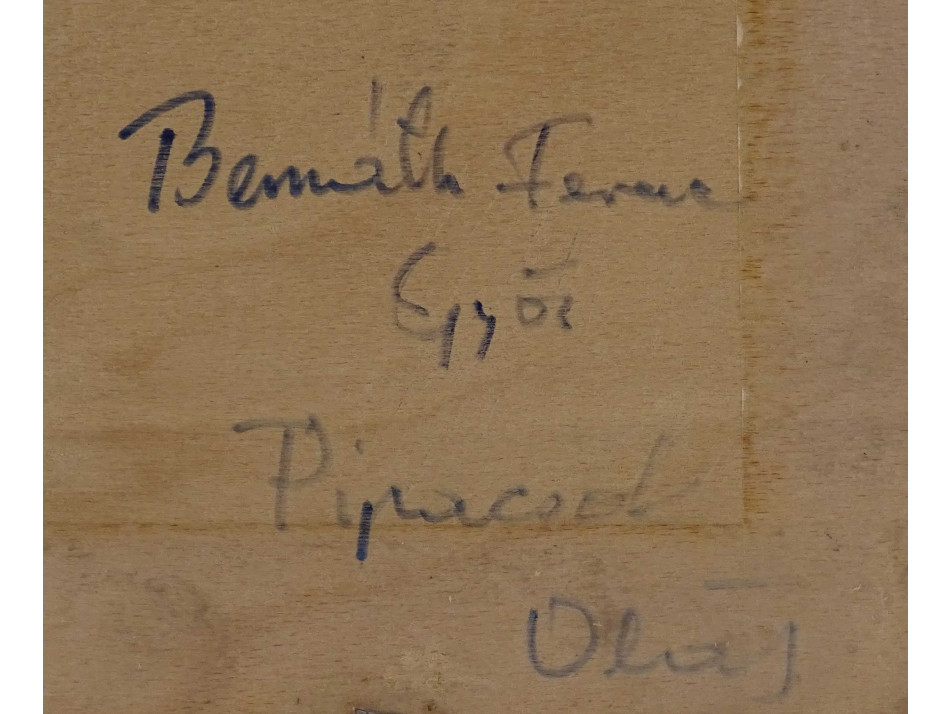 Bernáth Ferenc
Győr
Pipacsok
Olaj